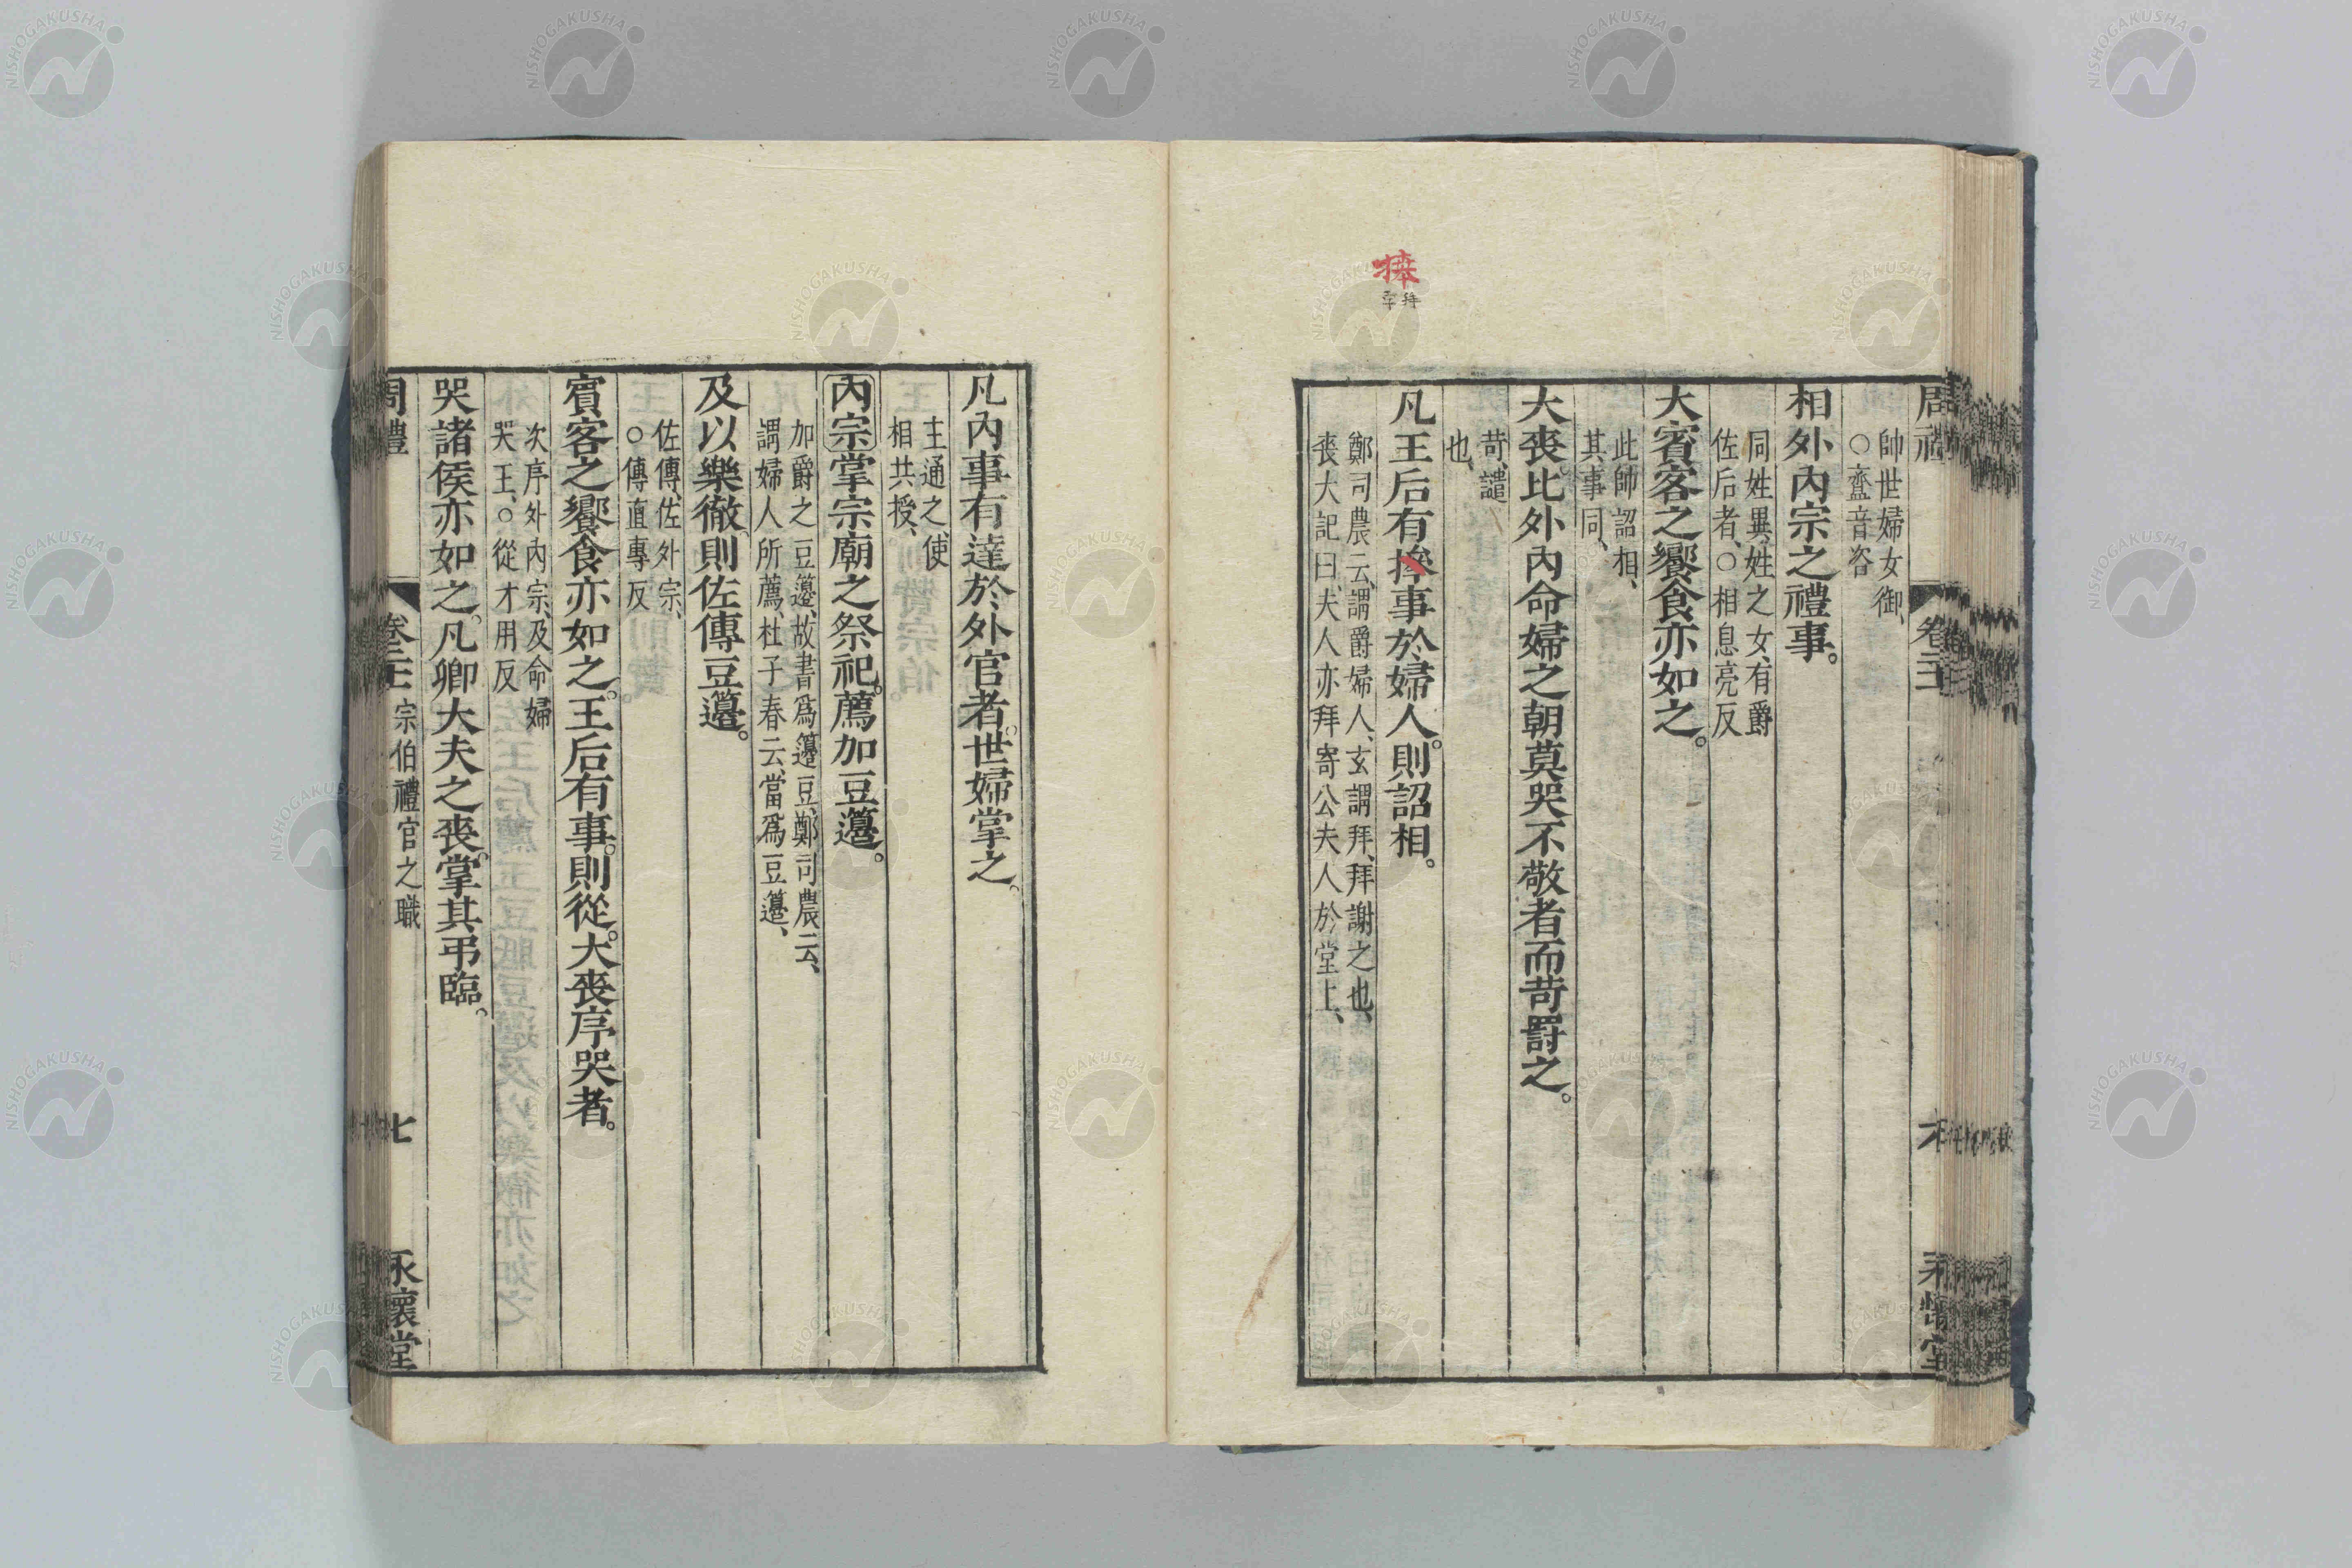 周禮
卷二十一
六
永懷堂
帥世婦女御、
○齍音咨
相外內宗之禮事。
同姓異姓之女、有爵
佐后者、○相息亮反
大賓客之饗食亦如之。
此帥詔相、
其事同、
大喪比外內命婦之朝莫哭不敬者而苛罰之。
苛、譴
也、
凡王后有𢷎事於婦人。則詔相。
鄭司農云、謂爵婦人、玄謂拜、拜謝之也、
喪大記曰、夫人亦拜寄公夫人於堂上、
凡內事有達於外官者。世婦掌之。
主通之、使
相共授、
內宗掌宗廟之祭祀。薦加豆籩。
加爵之豆籩、故書爲籩豆、鄭司農云、
謂婦人所薦、杜子春云、當爲豆籩、
及以樂徹。則佐傳豆籩。
佐傳、佐外宗、
○傳直專反
賓客之饗食亦如之。王后有事。則從。大喪序哭者。
次序外內宗、及命婦
哭王、○從才用反
哭諸侯亦如之。凡卿大夫之喪。掌其弔臨。
周禮
卷二十一
宗伯禮官之職
七
永懷堂
NISHOGAKUSHA